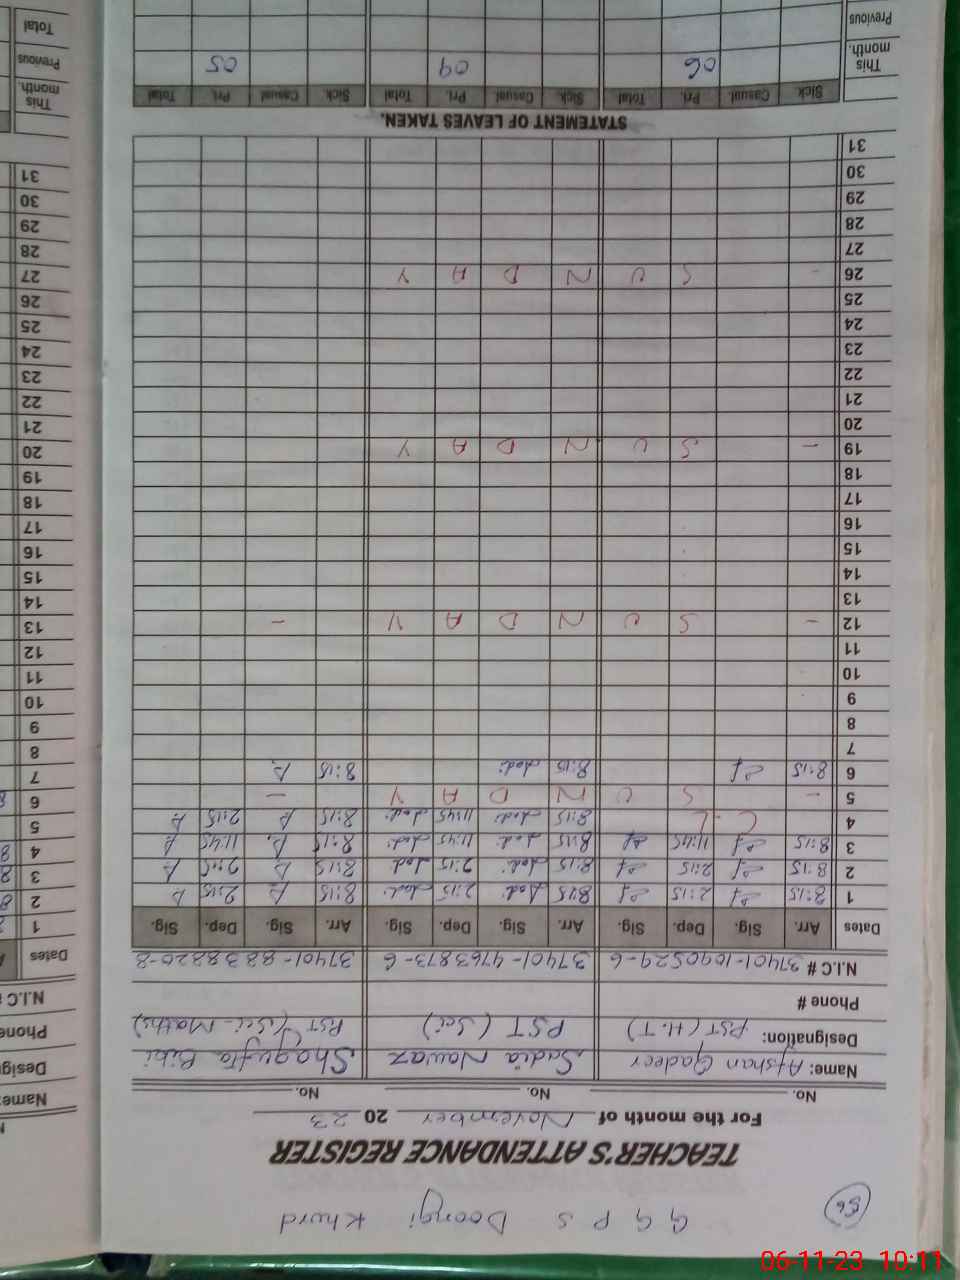 G G P S Doongi Khurd
56
TEACHER'S ATTENDANCE REGISTER
For the month of November 20 23
No. No. No.
Name: Afshan Qadeer Sadia Nawaz Shagufta Bibi
Designation: PST (H.T) PST (Sci) PST (Sci-Maths)
Phone #
N.I.C # 37401-1090529-6 37401-4763873-6 37401-8838820-8
Dates Arr. Sig. Dep. Sig. Arr. Sig. Dep. Sig. Arr. Sig. Dep. Sig.
1 8:15 2:15 8:15 2:15 8:15 2:15
2 8:15 2:15 8:15 2:15 8:15 2:15
3 8:15 11:45 8:15 11:45 8:15 11:45
4 C.L 8:15 11:45 8:15 2:15
5 - S U N D A Y -
6 8:15 8:15 8:15
7
8
9
10
11
12 - S U N D A Y -
13
14
15
16
17
18
19 - S U N D A Y
20
21
22
23
24
25
26 - S U N D A Y
27
28
29
30
31
STATEMENT OF LEAVES TAKEN.
Sick Casual Pri. Total Sick Casual Pri. Total Sick Casual Pri. Total
This month. 06 09 05
Previous
Name:
Design
Phone
N.I.C
Dates
1
2
3
4
5
6
7
8
9
10
11
12
13
14
15
16
17
18
19
20
21
22
23
24
25
26
27
28
29
30
31
This month.
Previous
Total
06-11-23 10:11